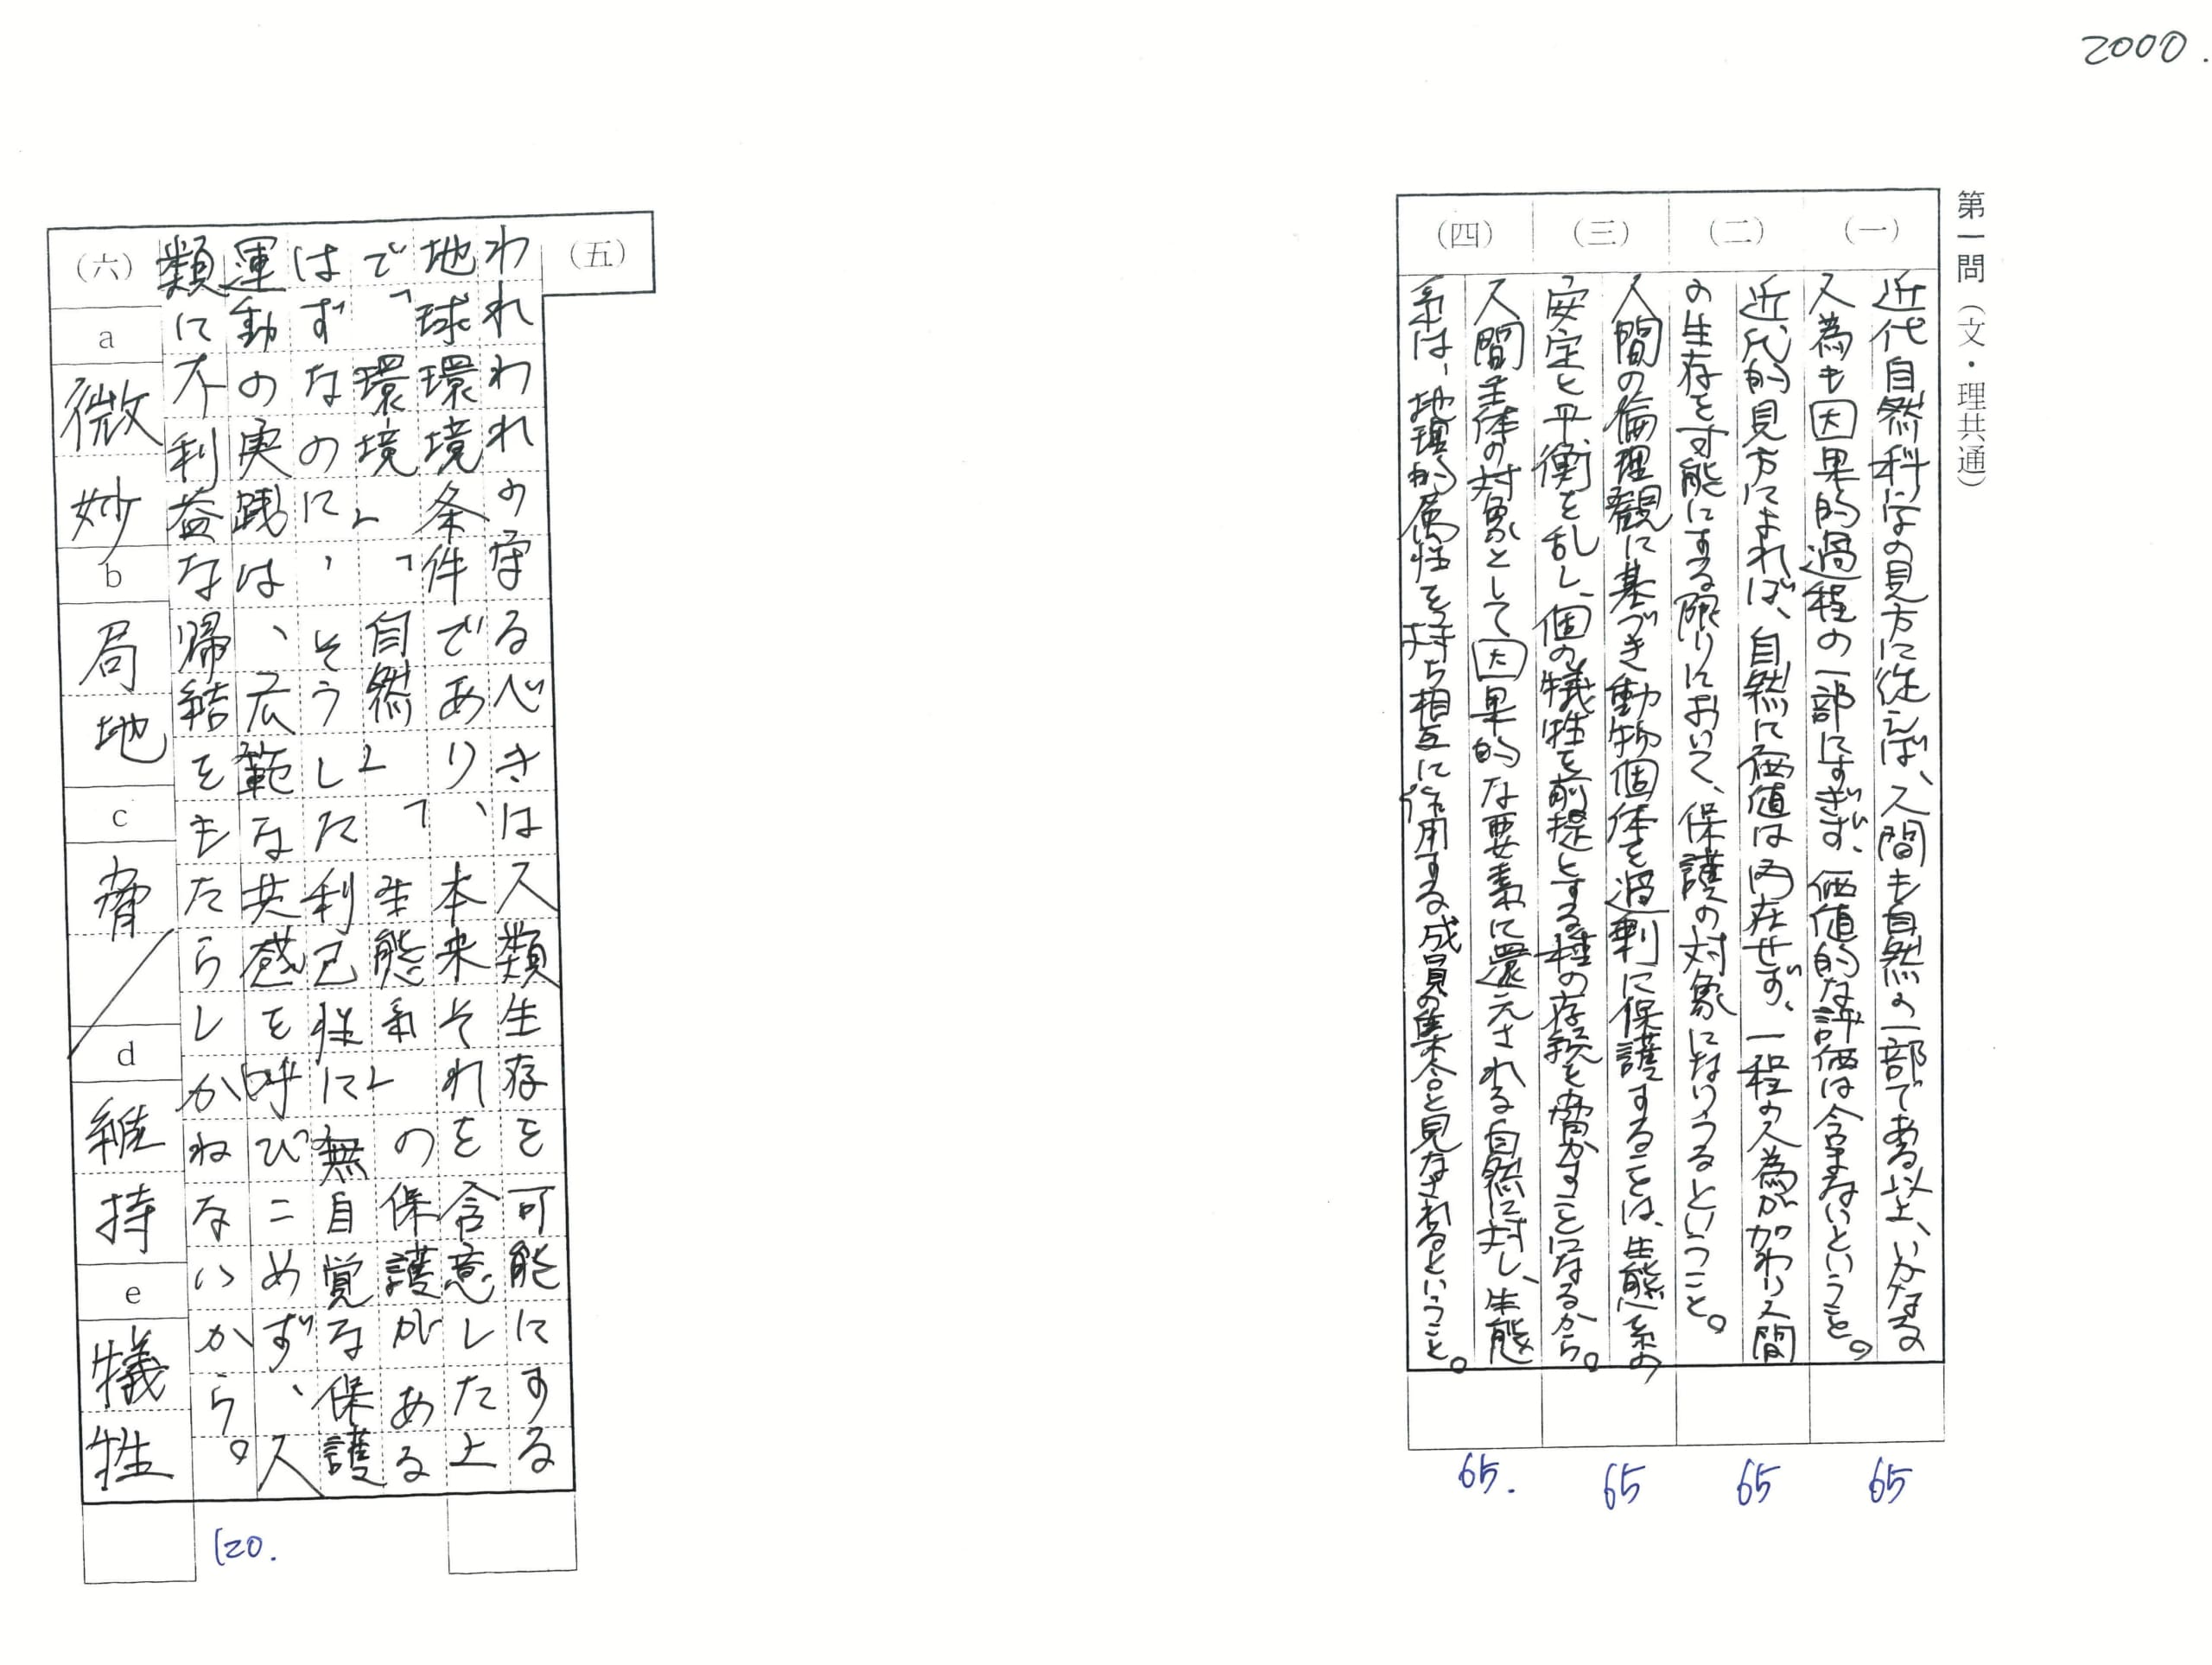 2000.
第一問（文・理共通）
（一）
近代自然科学の見方に従えば、人間も自然の一部である以上、いかなる
人為も因果的過程の一部にすぎず、価値的な評価は含まないということ。
65
（二）
近代的見方によれば、自然に価値は内在せず、一程の人為が加わり人間
の生存を可能にする限りにおいて、保護の対象になりうるということ。
65
（三）
人間の倫理観に基づき動物個体を過剰に保護することは、生態系の
安定と平衡を乱し、個の犠牲を前提とする種の存続を脅かすことになるから。
65
（四）
人間主体の対象として因果的な要素に還元される自然に対し、生態
系は、地理的属性を持ち相互に作用する成員の集合と見なされるということ。
65.
（五）
われわれの守るべきは人類生存を可能にする
地球環境条件であり、本来それを含意した上
で「環境」「自然」「生態系」の保護がある
はずなのに、そうした利己性に無自覚な保護
運動の実践は、広範な共感を呼びこめず、人
類に不利益な帰結をもたらしかねないから。
120.
（六）
a
微妙
b
局地
c
脅
d
維持
e
犠牲